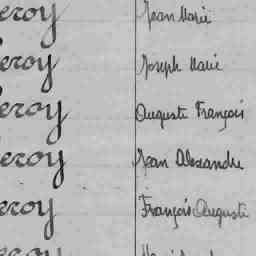 eroy Jean Marie
eroy Joseph Marie
eroy Auguste François
eroy Jean Alexandre
eroy François Auguste